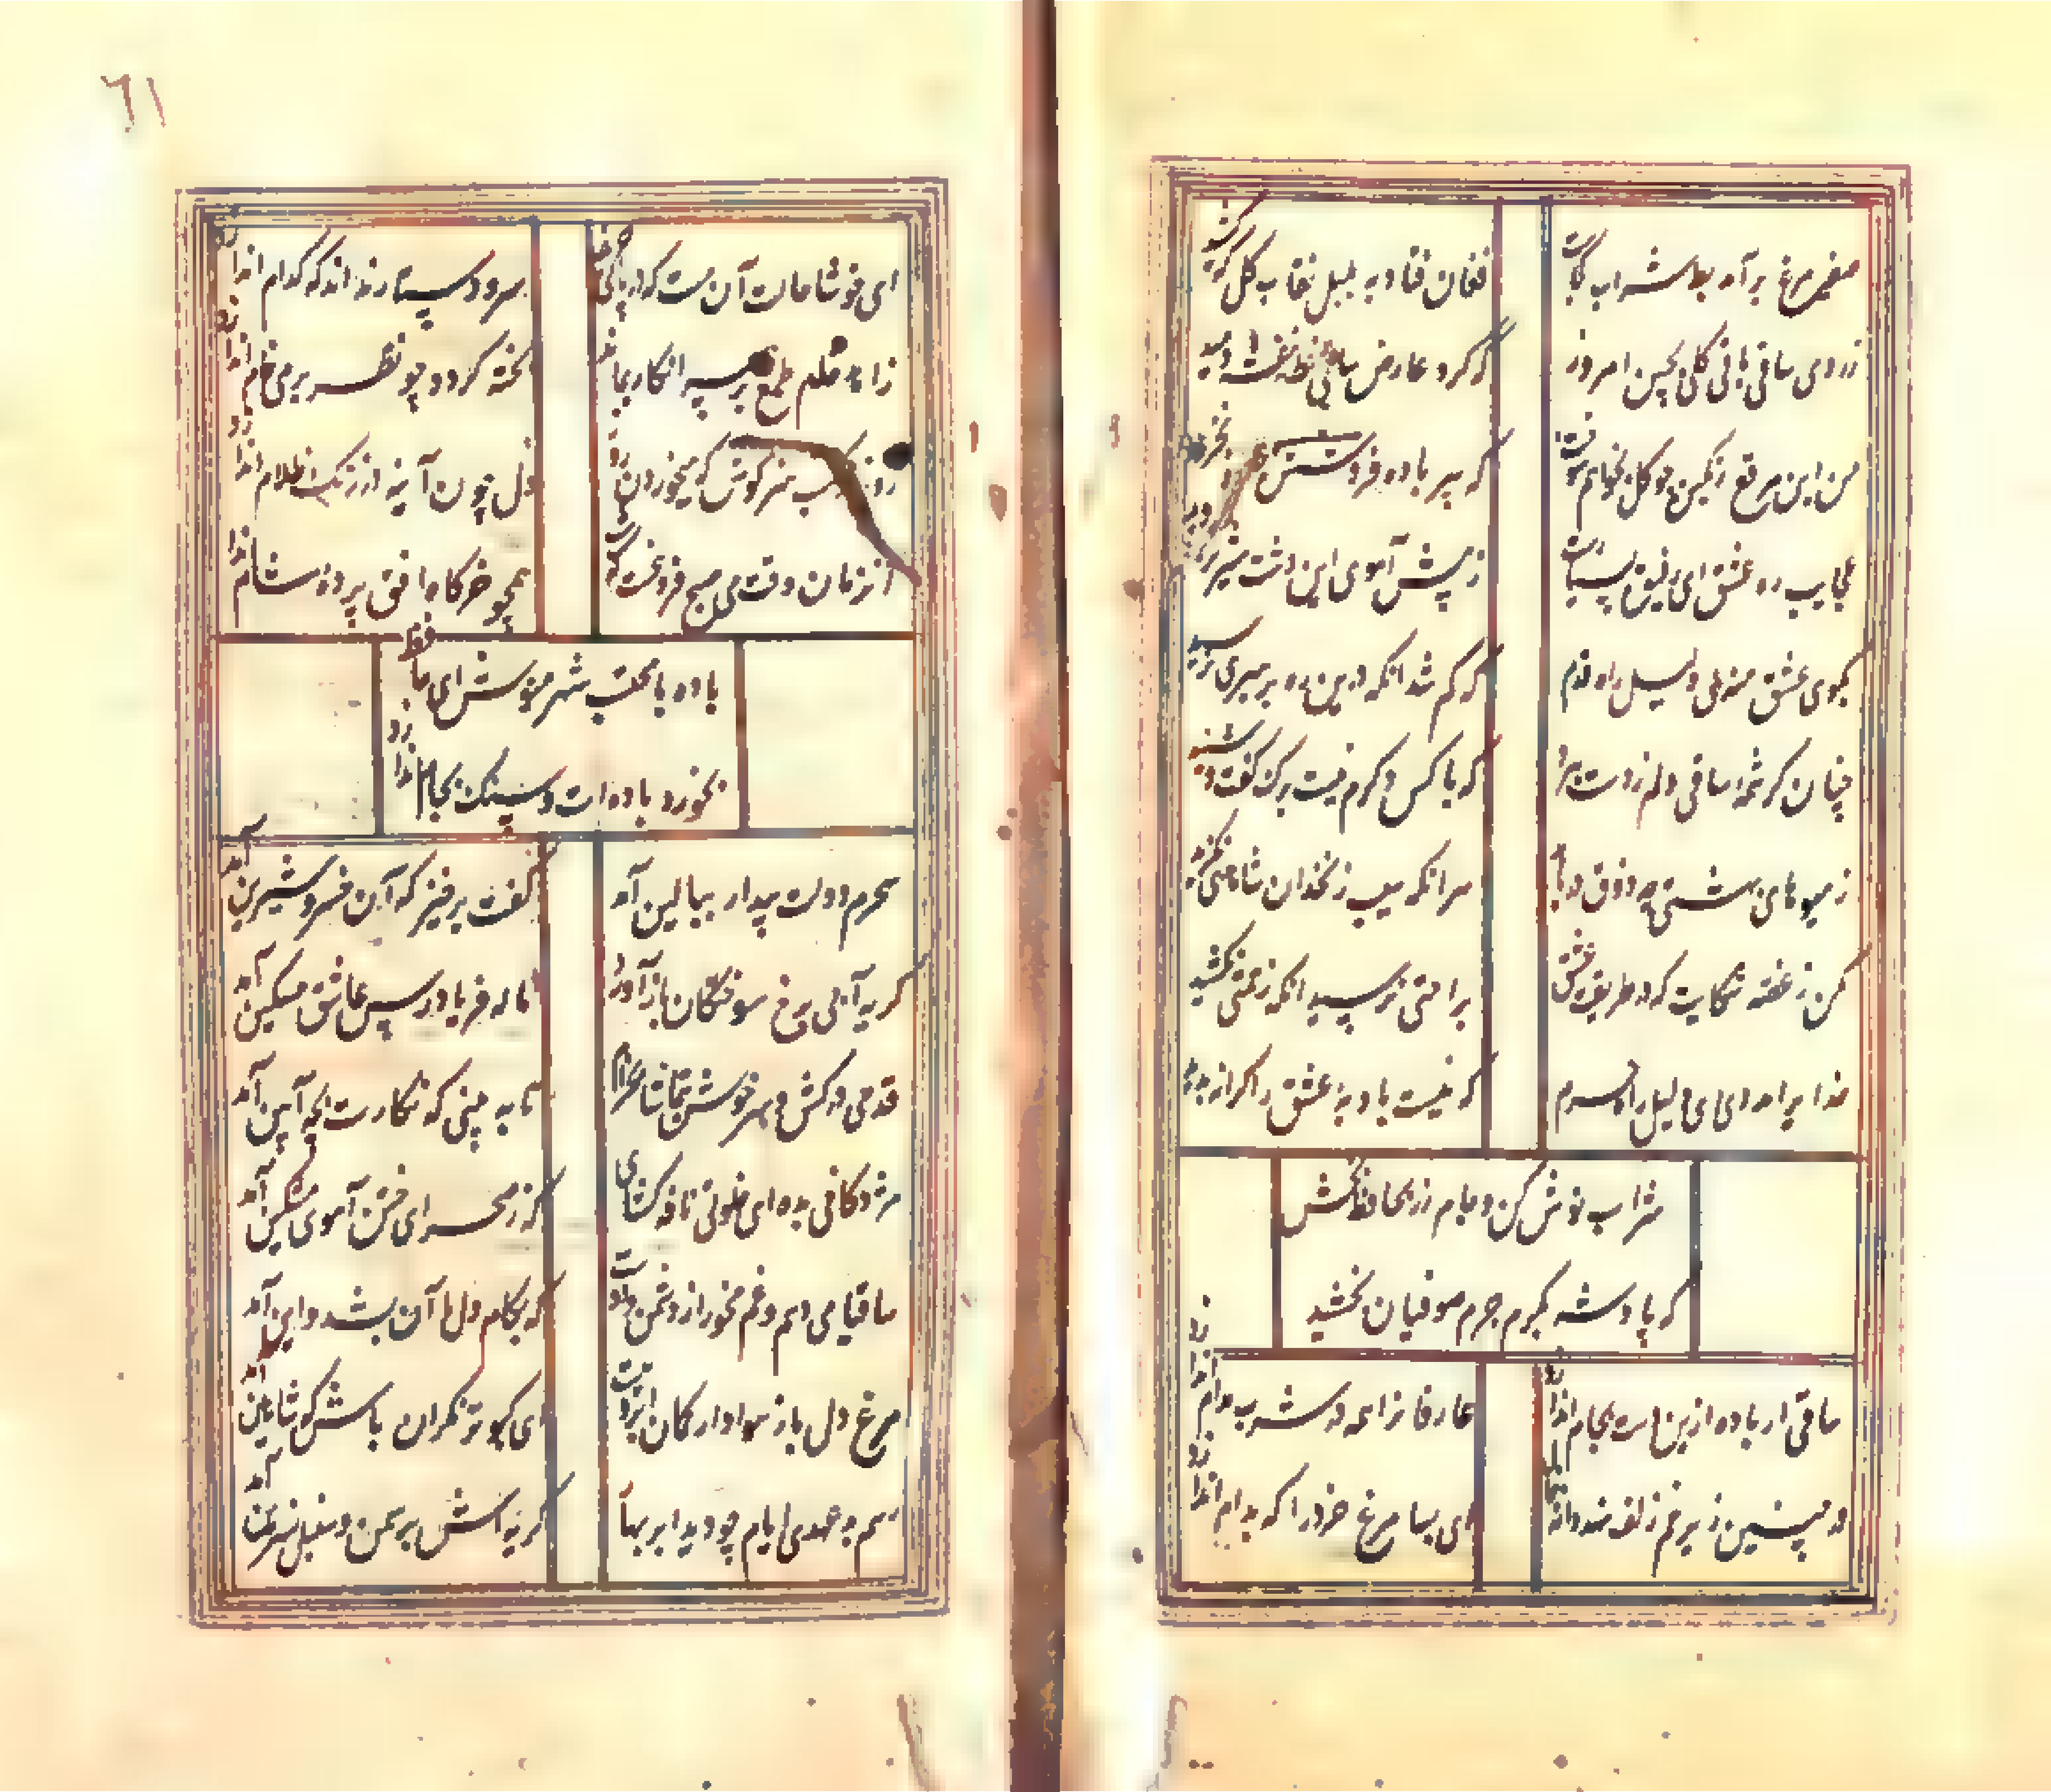 صفیر مرغ برآمد بط شراب کجاست
فغان فتاد به بلبل نقاب گل که کشید
ز روی ساقی مهوش گلی بچین امروز
که گرد عارض بستان خط بنفشه دمید
من این مرقع رنگین چو گل بخواهم سوخت
که پیر باده فروشش بجرعه نخرید
عجایب ره عشق ای رفیق بسیارست
ز پیش آهوی این دشت شیر نر برمید
بکوی عشق منه بی دلیل راه قدم
که گم شد آنکه درین ره برهبری نرسید
چنان کرشمه ساقی دلم ز دست ببرد
که با کس دگرم نیست برگ گفت و شنید
ز میوهای بهشتی چه ذوق دریابد
هر آنکه سیب زنخدان شاهدی نگزید
مکن ز غصه شکایت که در طریق عشق
براحتی نرسید آنکه زحمتی نکشید
خدایرا مددی ای دلیل راه حرم
که نیست بادیه عشق را کرانه پدید
شراب نوش کن و جام زر بحافظ بخش
که پادشه بکرم جرم صوفیان بخشید
ساقی ار باده ازین دست بجام اندازد
عارفانرا همه در شرب مدام اندازد
ور چنین زیر خم زلف نهد دانه خال
ای بسا مرغ خرد را که بدام اندازد
٦١
ای خوشا حالت آن مست که در پای حریف
سر و دستار نداند که کدام اندازد
زاهد خام طمع بر سر انکار بماند
پخته گردد چو نظر بر می خام اندازد
روز در کسب هنر کوش که می خوردن روز
دل چون آینه در زنگ ظلام اندازد
آنزمان وقت می صبح فروغست که
گرد خرگاه افق پرده شام اندازد
باده با محتسب شهر منوش ای حافظ
بخورد باده ات و سنگ بجام اندازد
سحرم دولت بیدار ببالین آمد
گفت برخیز که آن خسرو شیرین آمد
گریه آبی برخ سوختگان باز آورد
ناله فریادرس عاشق مسکین آمد
قدحی درکش و سرخوش بتماشا بخرام
تا به بینی که نگارت بچه آیین آمد
مژدگانی بده ای خلوتی نافه گشای
که ز صحرای ختن آهوی مشکین آمد
ساقیا می بده و غم مخور از دشمن و دوست
که بکام دل ما آن بشد و این آمد
مرغ دل باز هوادار کمان ابروییست
ای کبوتر نگران باش که شاهین آمد
رسم بدعهدی ایام چو دید ابر بهار
گریه اش بر سمن و سنبل و نسرین آمد